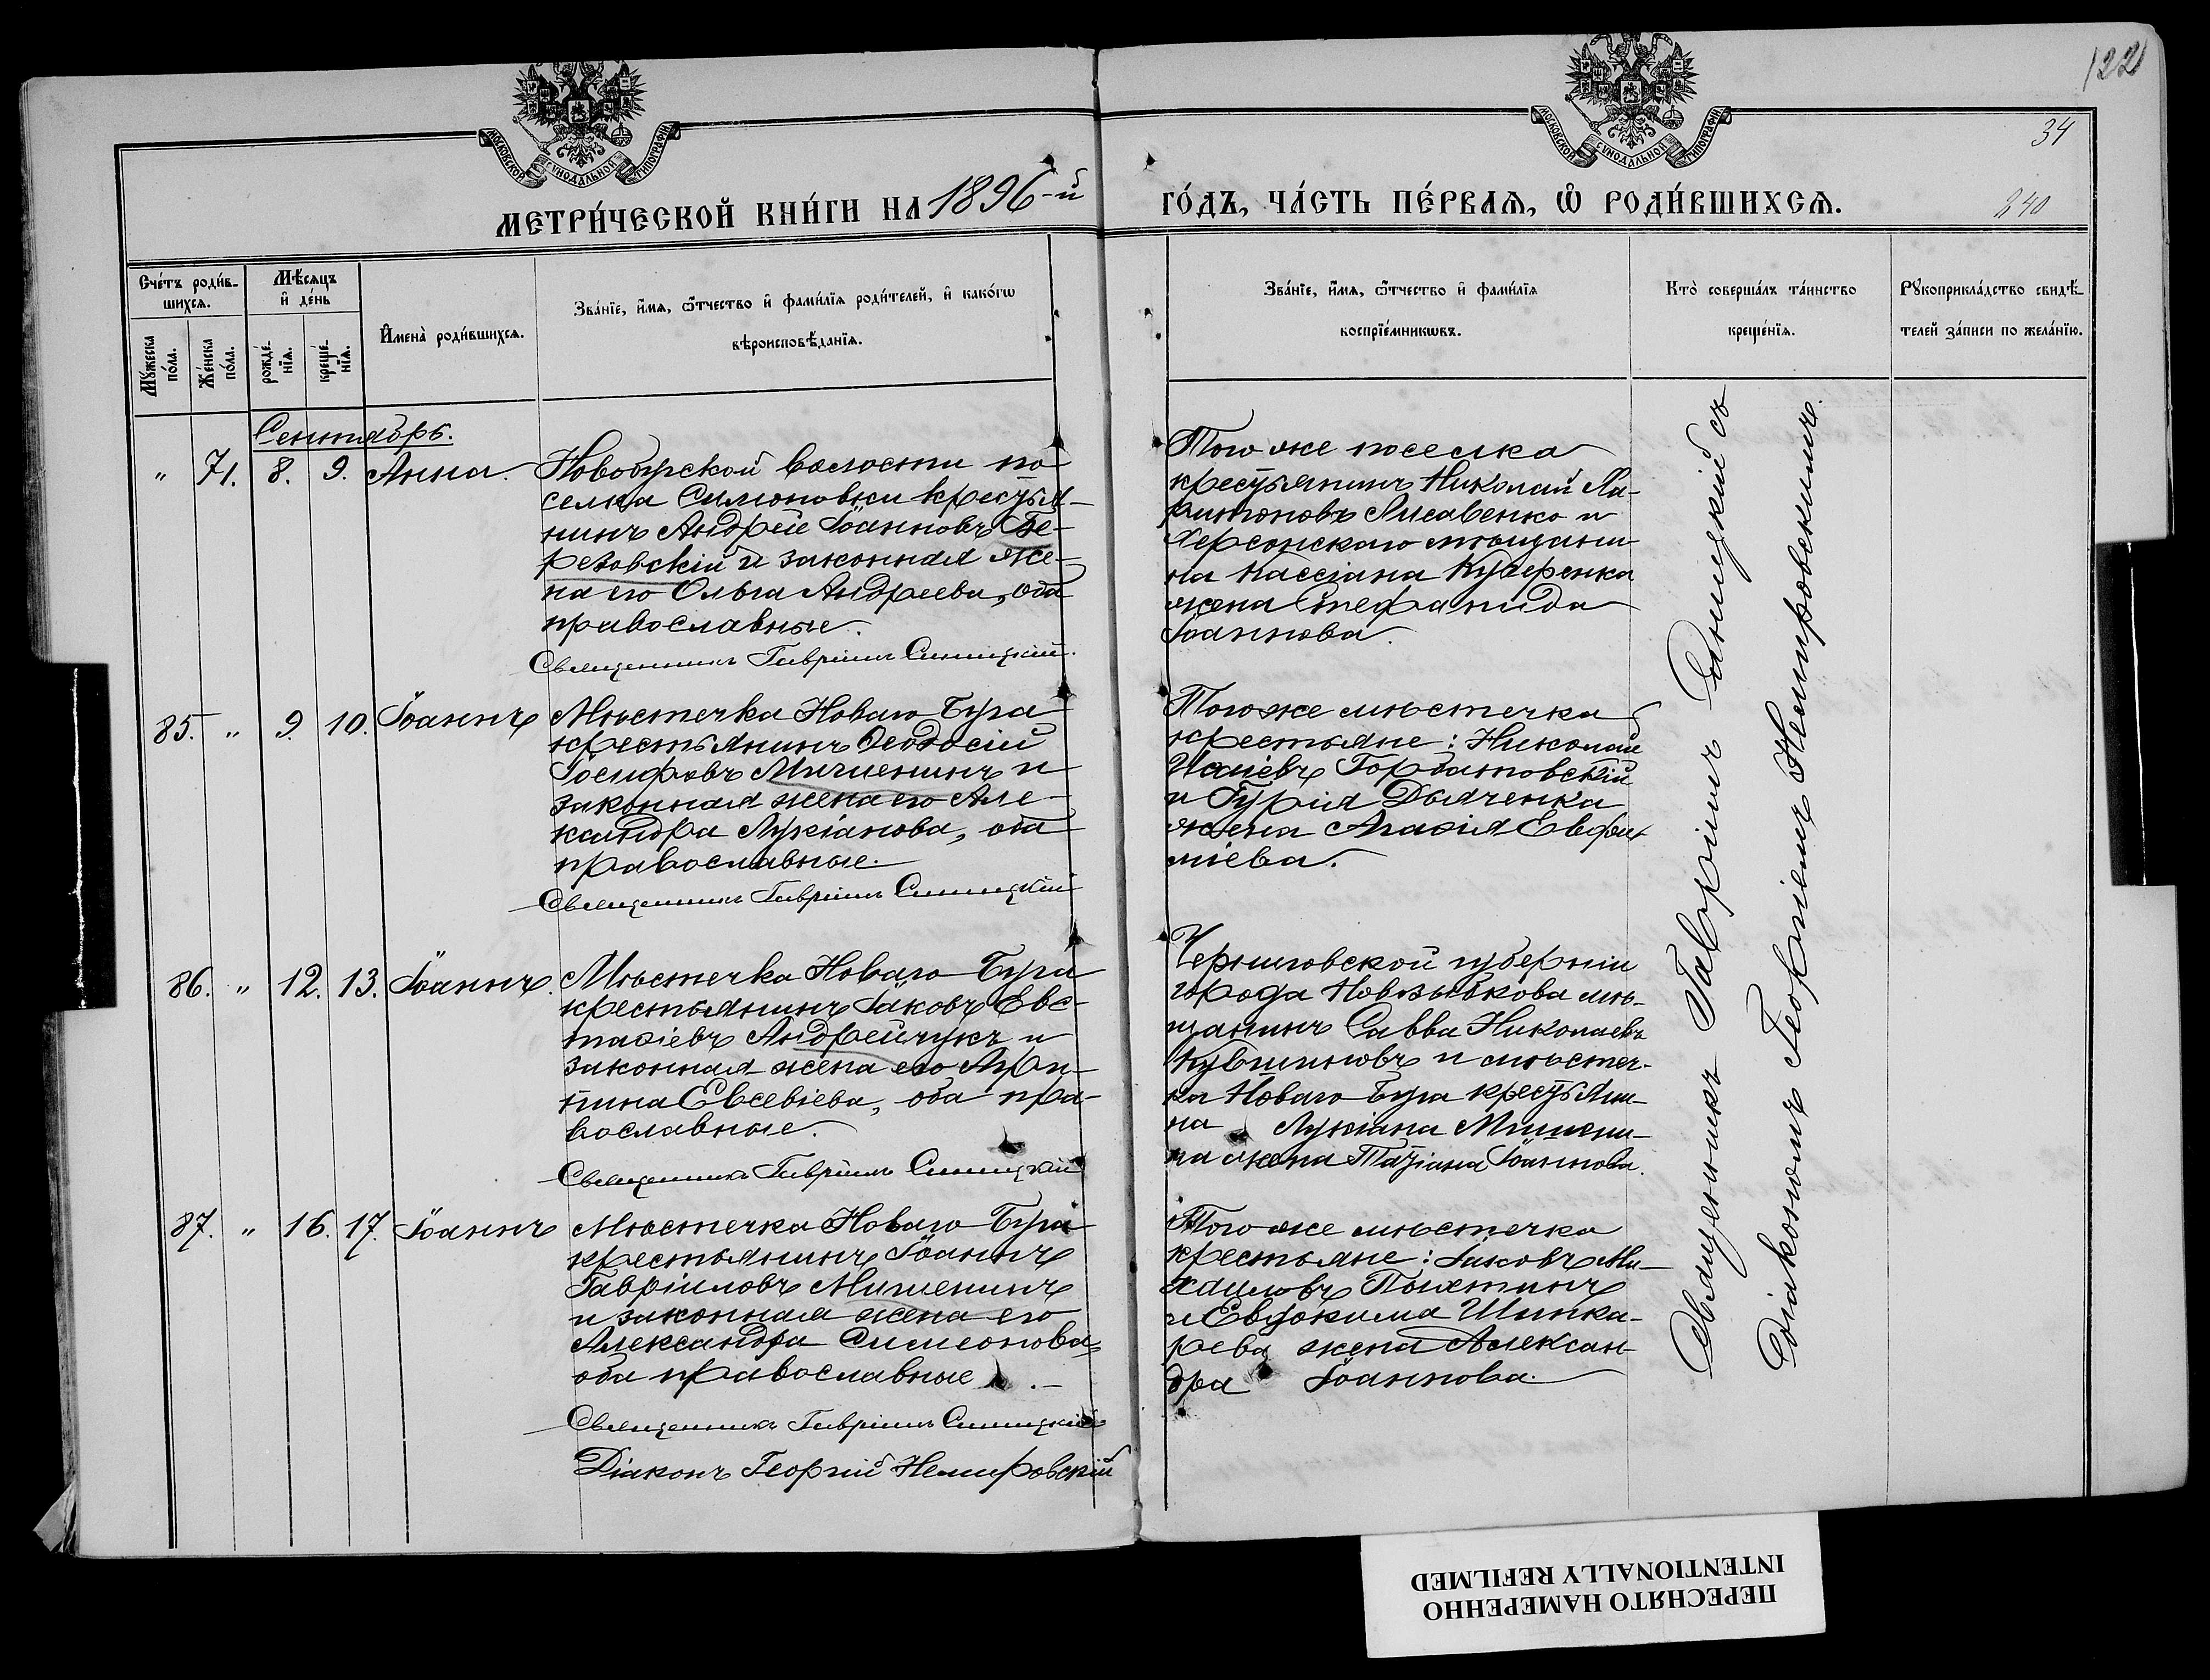 122
34
240
МОСКОВСКОЙ СѴНОДАЛЬНОЙ ТИПОГРАФІИ
МОСКОВСКОЙ СѴНОДАЛЬНОЙ ТИПОГРАФІИ
МЕТРИ́ЧЕСКОЙ КНИ́ГИ НА 1896-й
ГО́ДЪ, ЧА́СТЬ ПЕ́РВАѦ, Ѡ҆ РОДИ́ВШИХСѦ.
Сче́тъ роди́в-
шихсѧ.
Мѣ́сѧцъ
и҆ де́нь
Мꙋ́жеска
по́ла.
Же́нска
по́ла.
рожде́-
нїѧ.
креще́-
нїѧ.
И҆мена̀ роди́вшихсѧ.
Зва́нїе, и҆́мѧ, ѻ҆́тчество и҆ фами́лїѧ роди́телей, и҆ како́гѡ
вѣроисповѣ́данїѧ.
Зва́нїе, и҆́мѧ, ѻ҆́тчество и҆ фами́лїѧ
воспрїе́мникѡвъ.
Кто̀ соверша́лъ та́инство
креще́нїѧ.
Рꙋкоприкла́дство свидѣ́-
телей за́писи по жела́нїю.
Сентябрь.
" 71. 8. 9. Анна.
Новобугской волости по
селка Симоновки крестья-
нинъ Андрей Іоанновъ Бе-
резовскій и законная же-
на его Ольга Андреева, оба
православные.
Священникъ Гавріилъ Синицкій.
Того же поселка
крестьянинъ Николай Ха-
ритоновъ Лисавенко и
Херсонскаго мѣщани-
на Кассіана Кудеренка
жена Стефанида
Іоаннова.
85. " 9. 10. Іоаннъ
Мѣстечка Новаго Буга
крестьянинъ Ѳеодосій
Іосифовъ Мишенинъ и
законная жена его Але-
ксандра Лукіанова, оба
православные.
Священникъ Гавріилъ Синицкій
Того же мѣстечка
крестьяне: Николай
Исаіевъ Горбатовскій
и Гурія Дьяченка
жена Агаѳія Евфи-
міева.
86. " 12. 13. Іоаннъ.
Мѣстечка Новаго Буга
крестьянинъ Іаковъ Евс-
таѳіевъ Андрейчукъ и
законная жена его Ири-
нина Евсевіева, оба пра-
вославные.
Священникъ Гавріилъ Синицкій
Черниговской губерніи
города Новозыбкова мѣ-
щанинъ Савва Николаевъ
Кувшиновъ и мѣстеч-
ка Новаго Буга крестьяни-
на Лукіана Мишени-
на жена Татіана Іоаннова.
87. " 16. 17. Іоаннъ
Мѣстечка Новаго Буга
крестьянинъ Іоаннъ
Гавріиловъ Мишенинъ
и законная жена его
Александра Симеонова,
оба православные.
Священникъ Гавріилъ Синицкій
Діаконъ Георгій Немировскій
Того же мѣстечка
крестьяне: Іаковъ Ми-
хаиловъ
и Евдокима Шинка-
рева жена Алексан-
дра Іоаннова.
Священникъ Гавріилъ Синицкій съ
діакономъ Георгіемъ Немировскимъ.
ПЕРЕСНЯТО НАМЕРЕННО
INTENTIONALLY REFILMED